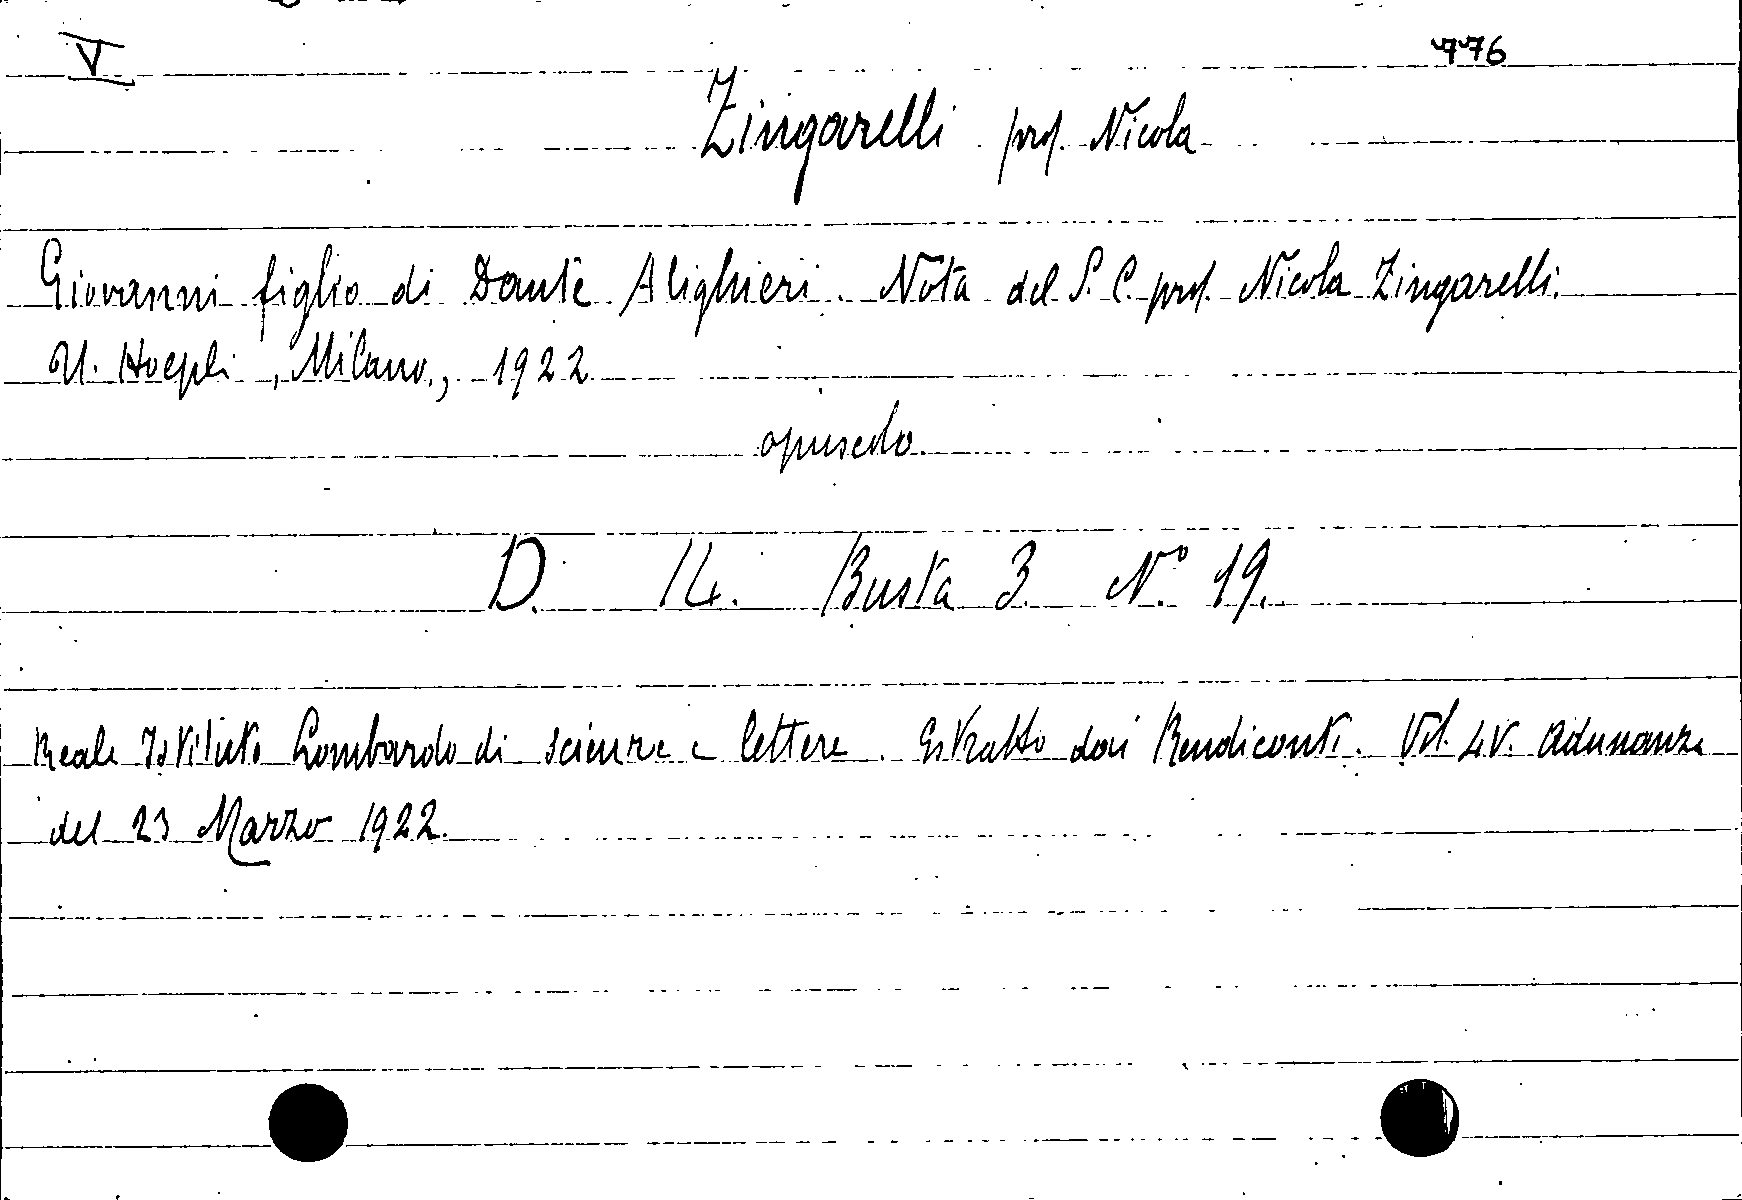 V 776
Zingarelli prof. Nicola
Giovanni figlio di Dante Alighieri. Nota del S. C. prof. Nicola Zingarelli.
U. Hoepli, Milano, 1922
opuscolo.
D. 14. Busta 3 N.º 19.
Reale Istituto Lombardo di scienze e lettere. Estratto dai Rendiconti. Vol. LV. Adunanza
del 23 Marzo 1922.